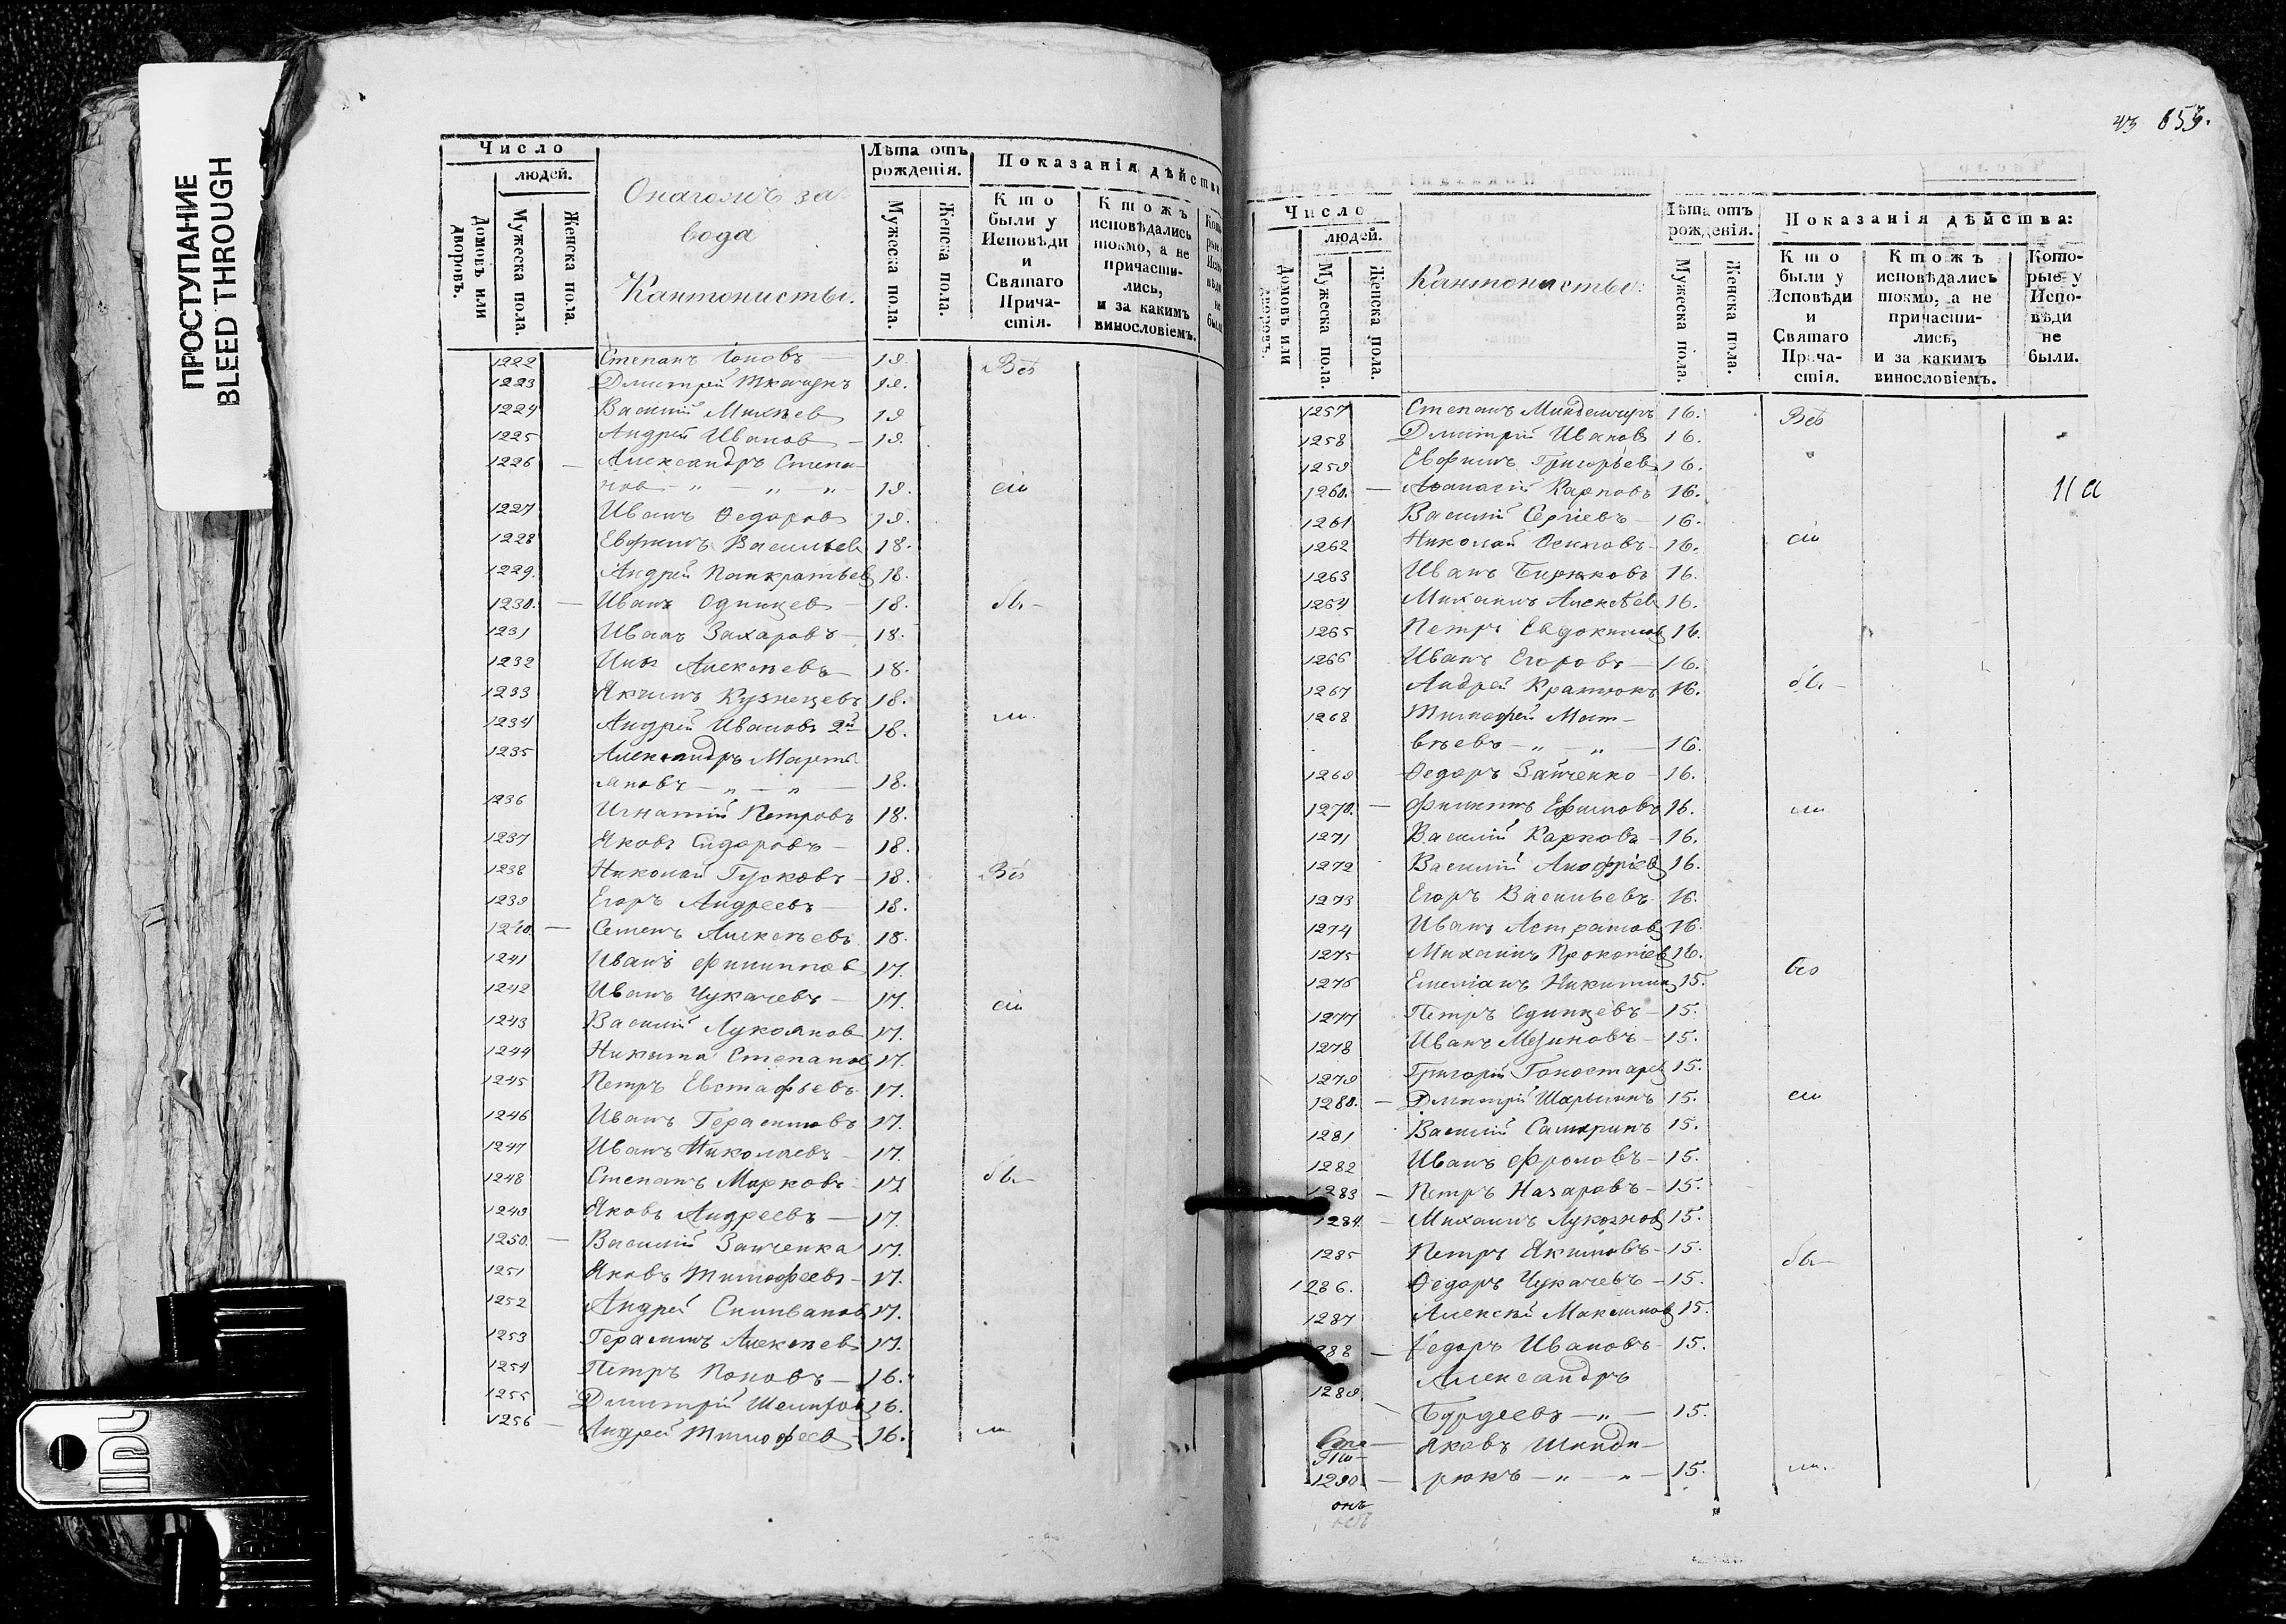 ПРОСТУПАНИЕ
BLEED THROUGH
Число
людей.
Домовъ или дворовъ.
Мужеска пола.
Женска пола.
Онагожъ за
вода
Кантонисты.
Лѣта отъ рожденія.
Мужеска пола.
Женска пола.
Показанія дѣйства
Кто были у Исповѣди и Святаго Прича-стія.
Ктожъ исповѣдались токмо, а не причасти-лись, и за какимъ винословіемъ.
1222 Степанъ Іоновъ — 19.
1223 Дмитрій Ткачукъ 19.
1224 Василій Михѣев 19
1225 Андрей Иванов — 19.
1226 — Александръ Степа-
нов — „ — „ — „ — 19.
1227 Иванъ Ѳедоров 19.
1228 Евфимъ Васильев 18.
1229. Андрей Панкратьев 18.
1230. — Иванъ Одинцев — 18.
1231 Иванъ Захаровъ — 18.
1232 Алексѣевъ 18.
1233 Якимъ Кузнецевъ 18.
1234 Андрей Ивановъ 2й 18.
1235 Александръ Марть
яновъ — „ — „ — 18.
1236 Игнатій Петровъ 18.
1237 Яковъ Сидоровъ — 18.
1238 Николай Гусковъ — 18.
1239 Егоръ Андреевъ — 18.
1240. — Семенъ Алексѣевъ 18.
1241 Иванъ Филиппов 17.
1242 Иванъ Чукачевъ — 17.
1243 Василій Лукоянов 17.
1244 Никита Степанов 17.
1245 Петръ Евстафьевъ 17.
1246 Иванъ Герасимовъ 17.
1247 Иванъ Николаевъ — 17.
1248 Степанъ Марковъ — 17
1249 Яковъ Андреевъ — 17.
1250. — Василій Зайченка 17.
1251 Яковъ Тимофеевъ — 17.
1252 Андрей Силиванов 17.
1253 Герасимъ Алексѣев 17.
1254 Петръ Поповъ — 16.
1255 Дмитрій 16.
1256 — Андрей Тимофеев — 16.
Всѣ
сіи
бы —
ли.
Всѣ
сіи
бы —
ли
653.
Число
людей.
Домовъ или дворовъ.
Мужеска пола.
Женска пола.
Кантонисты.
Лѣта отъ рожденія.
Мужеска пола.
Женска пола.
Показанія дѣйства:
Кто были у Исповѣди и Святаго Прича-стія.
Ктожъ исповѣдались токмо, а не причасти-лись, и за какимъ винословіемъ.
Кото-рые у Испо-вѣди не были.
1257 Степанъ 16.
1258 Дмитрій Иванов 16.
1259 Евфимъ Григорьев 16.
1260. — Аѳанасій Карповъ 16.
1261 Василій Сергіевъ — 16.
1262 Николай Осиповъ — 16.
1263 Иванъ Бирюковъ 16.
1264 Михаилъ Алексѣев 16.
1265 Петръ Евдокимов 16.
1266 Иванъ Егоровъ — 16.
1267 Андрей 16.
1268 Тимофей Мат-
вѣевъ — „ — „ — 16.
1269 Ѳедоръ Зайченко — 16.
1270. — Филиппъ Ефимовъ 16.
1271 Василій Карповъ — 16.
1272 Василій Анофріев 16.
1273 Егоръ Васильевъ 16.
1274 Иванъ Астратов 16.
1275 Михаилъ Прокопіев 16.
1276 Емеліанъ Никитин 15.
1277 Петръ Одинцевъ — 15.
1278 Иванъ Мезиновъ — 15.
1279 Григорій Гоностарев 15.
1280. — Дмитрій Шарыгинъ 15.
1281 Василій Самаринъ 15.
1282 Иванъ Фроловъ — 15.
1283 — Петръ Назаровъ — 15.
1284. — Михаилъ Лукоянов 15.
1285 Петръ Якимовъ — 15.
1286. Ѳедоръ Чукачевъ — 15.
1287 Алексѣй Максимов 15.
288 — Ѳедоръ Ивановъ — 15.
1289. Александръ
Бурдеевъ — „ — 15.
Яковъ Шинди-
1290. — рюкъ — „ — „ — 15.
Всѣ
сіи
бы —
ли
Всѣ
сіи
бы —
ли.